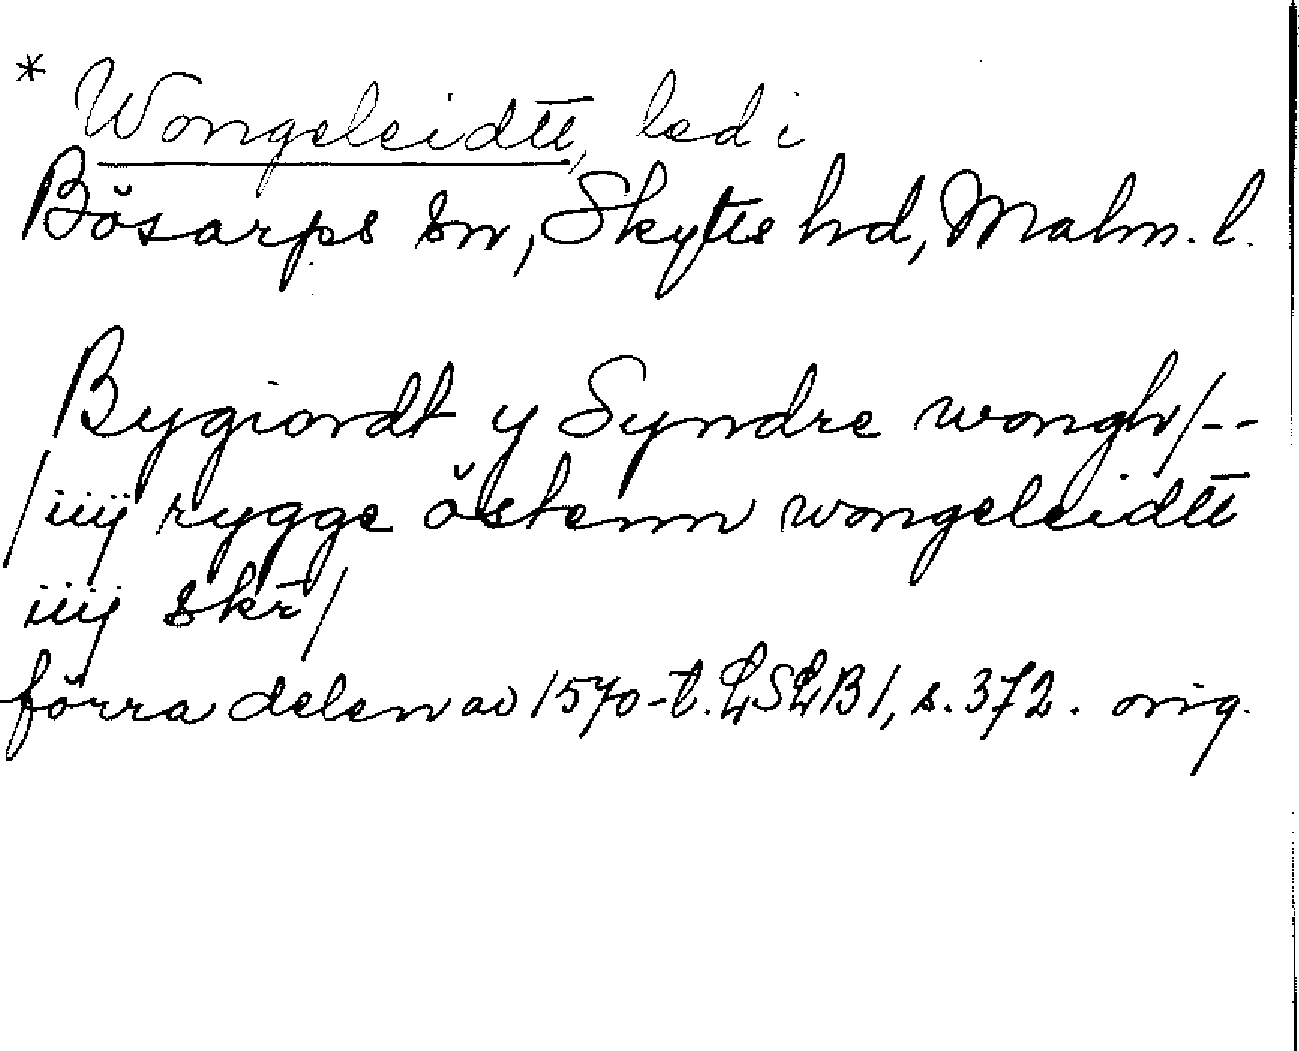 * Wongeleidtt, led i
Bösarps sn, Skytts hd, Malm. l.
Bygiordt y Syndre wongh/--
/iiij rygge östenn wongeleidtt
iiij skr/
förra delen av 1570-t. LSLB1, s. 372. orig.